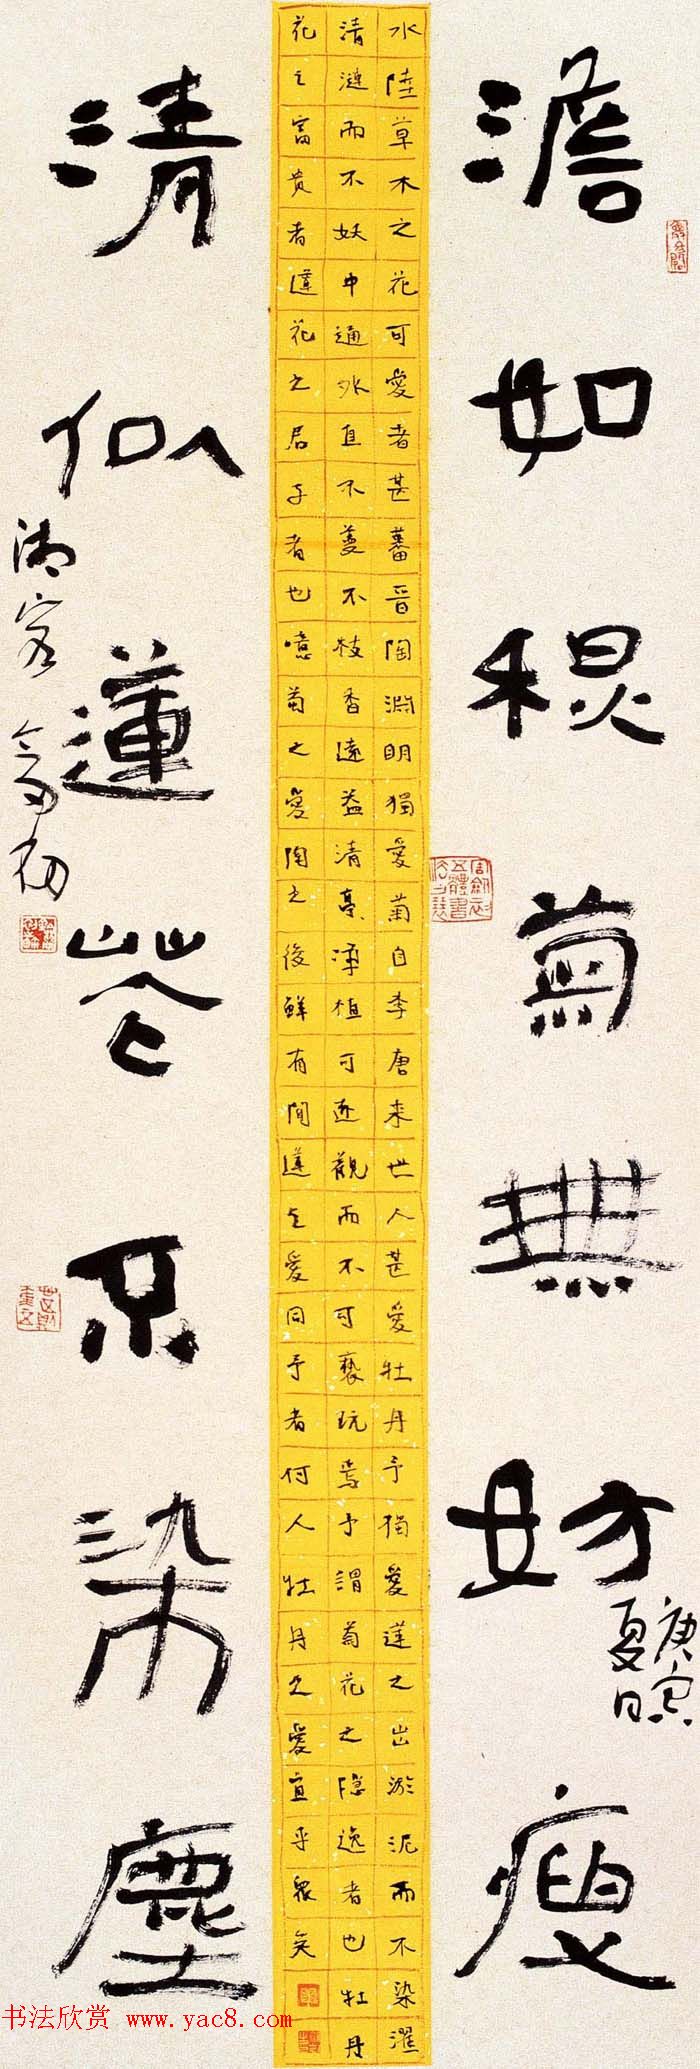 澹如秋菊無妨瘦
庚寅夏日
水陸草木之花可愛者甚蕃晋陶淵明獨愛菊自李唐来世人甚愛牡丹予獨愛蓮之出淤泥而不染濯
清漣而不妖中通外直不蔓不枝香遠益清亭净植可近觀而不可褻玩焉予謂菊花之隐逸者也牡丹
花之富贵者蓮花之君子者也噫菊之愛陶之後鮮有聞蓮之愛同予者何人牡丹之愛宜乎眾矣
清似蓮花不染塵
湘客劍初
书法欣赏 www.yac8.com